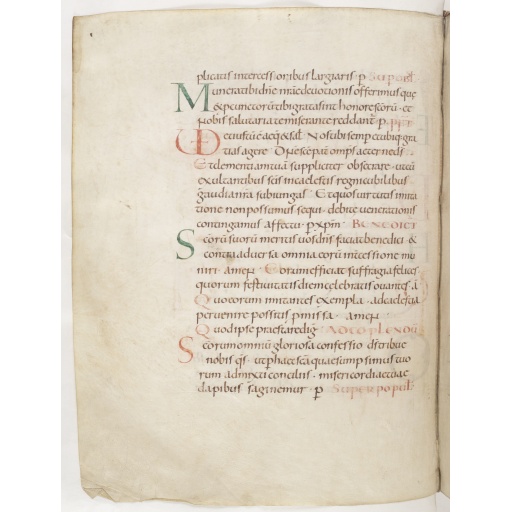 plicatis intercessoribus largiaris p Sup obl
Munera tibi dne nrae devotionis offerimus quę
& p cunctorū tibi grata sint honore scorū & c
nobis salutaria te miserante reddant p
VD Et iustū ē aeq & sal Nos tibi semp & ubiq gra
tias agere Dne scē pat omps aeterne ds
Et clementiam tuā suppliciter obsecrare ut cū
exultantibus scis in caelestis regni cubilibus
gaudia nra subiungas Et quos virtutis imita
tione non possumus sequi debite venerationis
contingamus affectu p xpm BENEDICT
Scorū suorū meritis vos dns faciat benedici &
contra adversa omnia eorū intcessione mu
niri amen Eorum efficiat suffragia felices
quorum festivitatis diem celebratis ovantes a
Quo eorum imitantes exempla ad caelestia
pervenire possitis pmissa amen
Quod ipse praestare dig AD COPLENDŪ
Scorum omniū gloriosa confessio ds tribue
nobis qs ut p haec sca quae sumpsimus tuo
rum admixti conciliis misericordiae tuae
dapibus saginemur p Super popul